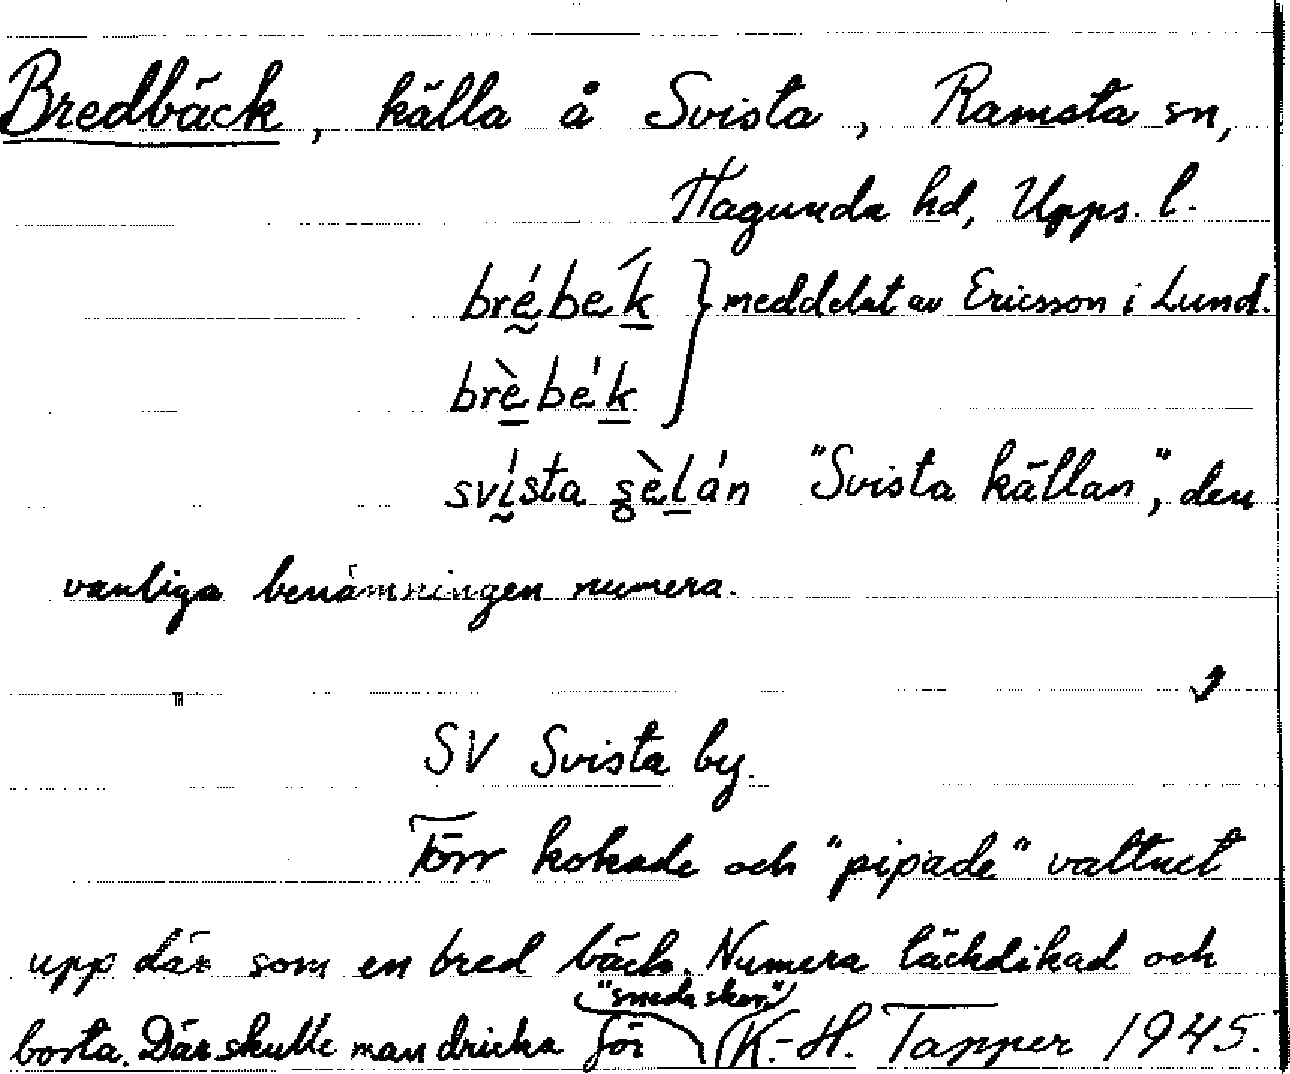 Bredbäck, källa å Svista, Ramsta sn,
Hagunda hd, Upps. l.
brḛ́beḱ̲ } meddelat av Ericsson i Lund.
brè̲bék̲
svḭ́sta s̥èl̲án "Svista källan", den
vanliga benämningen numera.
SV Svista by.
Förr kokade och "pipade" vattnet
upp där som en bred bäck. Numera täckdikad och
borta. Där skulle man dricka för "sneda sker"
K.-H. Tapper 1945.